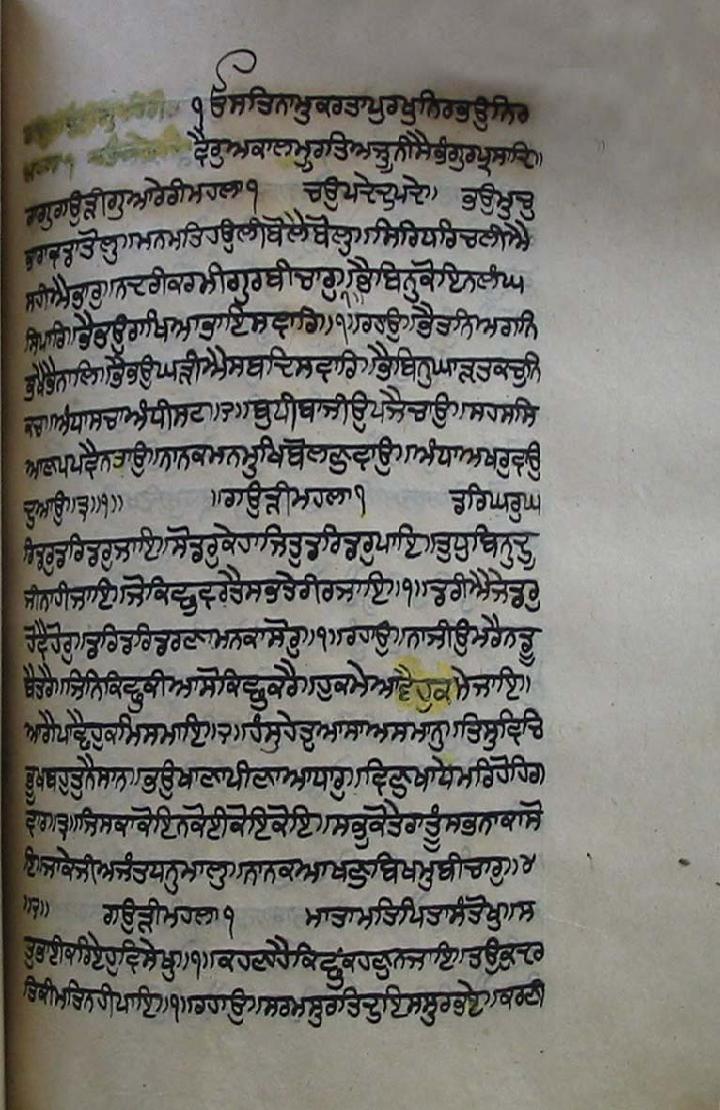 ੴ ਸਤਿਨਾਮੁਕਰਤਾਪੁਰਖੁਨਿਰਭਉਨਿਰ
ਵੈਰੁਅਕਾਲਮੂਰਤਿਅਜੂਨੀਸੈਭੰਗੁਰਪ੍ਰਸਾਦਿ॥
ਰਾਗੁਗਉੜੀਗੁਆਰੇਰੀਮਹਲਾ੧ ਚਉਪਦੇਦੁਪਦੇ॥ ਭਉਮੁਚੁ
ਭਾਰਾਵਡਾਤੋਲੁ॥ਮਨਮਤਿਹਉਲੀਬੋਲੇਬੋਲੁ॥ਸਿਰਿਧਰਿਚਲੀਐ
ਸਹੀਐਭਾਰੁ॥ਨਦਰੀਕਰਮੀਗੁਰਬੀਚਾਰੁ॥ਭੈਬਿਨੁਕੋਇਨਲੰਘ
ਸਿਪਾਰਿ॥ਭੈਭਉਰਾਖਿਆਭਾਇਸਵਾਰਿ॥੧॥ਰਹਾਉ॥ਭੈਤਨਿਅਗਨਿ
ਭਖੈਭੈਨਾਲਿ॥ਭੈਭਉਘੜੀਐਸਬਦਿਸਵਾਰਿ॥ਭੈਬਿਨੁਘਾੜਤਕਚੁਨਿ
ਕਚ॥ਅੰਧਾਸਚਾਅੰਧੀਸਟ॥੨॥ਬੁਧੀਬਾਜੀਉਪਜੈਚਾਉ॥ਸਹਸਸਿ
ਆਣਪਪਵੈਨਤਾਉ॥ਨਾਨਕਮਨਮੁਖਿਬੋਲਣੁਵਾਉ॥ਅੰਧਾਅਖਰੁਵਾਉ
ਦੁਆਉ॥੩॥੧॥ ॥ਗਉੜੀਮਹਲਾ੧ ਡਰਿਘਰੁਘ
ਰਿਡਰੁਡਰਿਡਰੁਜਾਇ॥ਸੋਡਰੁਕੇਹਾਜਿਤੁਡਰਿਡਰੁਪਾਇ॥ਤੁਧੁਬਿਨੁਦੂ
ਜੀਨਾਹੀਜਾਇ॥ਜੋਕਿਛੁਵਰਤੈਸਭਤੇਰੀਰਜਾਇ॥੧॥ਡਰੀਐਜੇਡਰੁ
ਹੋਵੈਹੋਰੁ॥ਡਰਿਡਰਿਡਰਣਾਮਨਕਾਸੋਰੁ॥੧॥ਰਹਾਉ॥ਨਾਜੀਉਮਰੈਨਡੂ
ਬੈਤਰੈ॥ਜਿਨਿਕਿਛੁਕੀਆਸੋਕਿਛੁਕਰੈ॥ਹੁਕਮੇਆਵੈਹੁਕਮੇਜਾਇ॥
ਆਗੈਪਾਛੈਹੁਕਮਿਸਮਾਇ॥੨॥ਹੰਸੁਹੇਤੁਆਸਾਅਸਮਾਨੁ॥ਤਿਸੁਵਿਚਿ
ਭੂਖਬਹੁਤੁਨੈਸਾਨ॥ਭਉਖਾਣਾਪੀਣਾਆਧਾਰੁ॥ਵਿਣੁਖਾਧੇਮਰਿਹੋਹਿਗ
ਵਾਰ॥੩॥ਜਿਸਕਾਕੋਇਨਕੋਈਕੋਇਕੋਇ॥ਸਭੁਕੋਤੇਰਾਤੂੰਸਭਨਾਕਾਸੋ
ਇ॥ਜਾਕੇਜੀਅਜੰਤਧਨੁਮਾਲੁ॥ਨਾਨਕਆਖਣੁਬਿਖਮੁਬੀਚਾਰੁ॥੪
॥੨॥ ਗਉੜੀਮਹਲਾ੧ ਮਾਤਾਮਤਿਪਿਤਾਸੰਤੋਖੁ॥ਸ
ਤੁਭਾਈਕਰਿਏਹੁਵਿਸੇਖੁ॥੧॥ਕਹਣਾਹੈਕਿਛੁਕਹਣੁਨਜਾਇ॥ਤਉਕੁਦਰ
ਤਿਕੀਮਤਿਨਹੀਪਾਇ॥੧॥ਰਹਾਉ॥ਸਰਮਸੁਰਤਿਦੁਇਸਸੁਰਭਏ॥ਕਰਣੀ